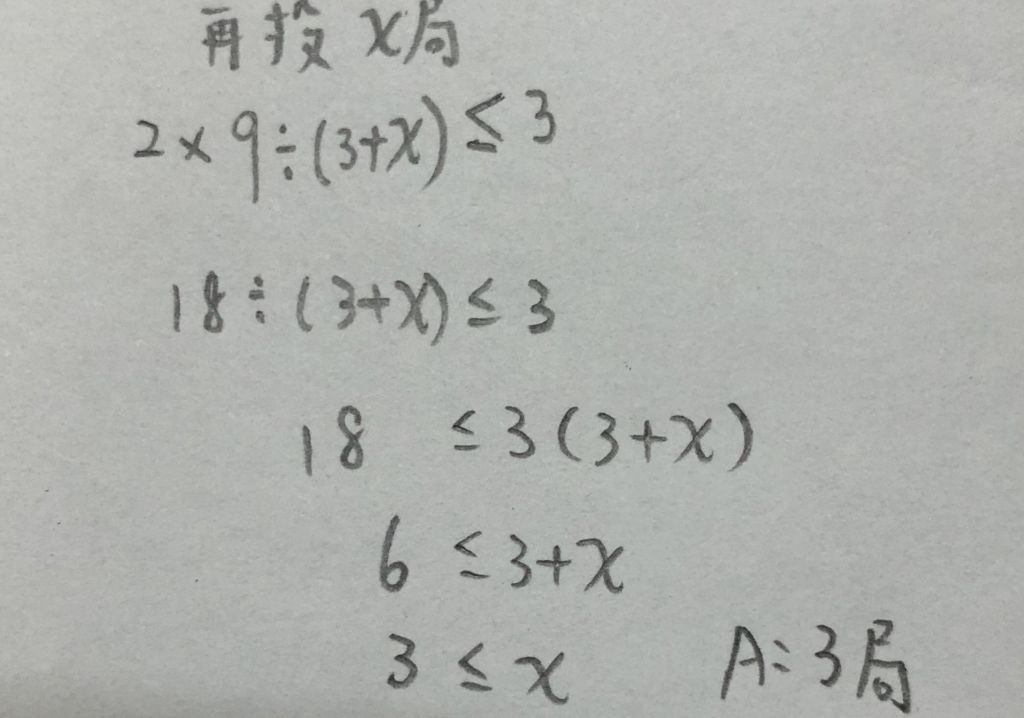 再投 x局
2 × 9 ÷ (3+x) ≤ 3
18 ÷ (3+x) ≤ 3
18 ≤ 3 (3+x)
6 ≤ 3+x
3 ≤ x A: 3局